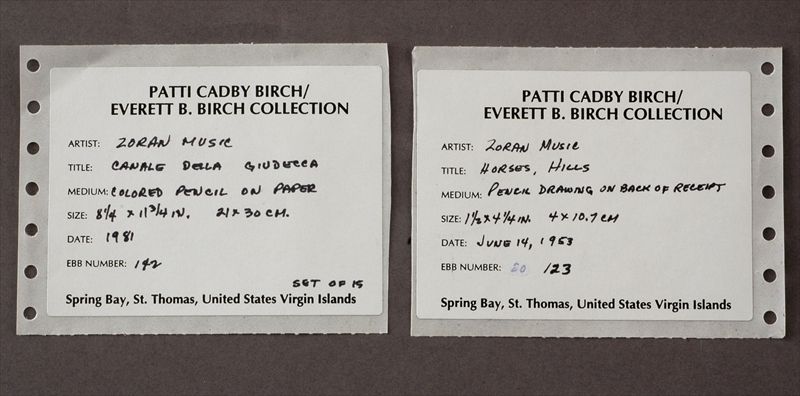 PATTI CADBY BIRCH/
EVERETT B. BIRCH COLLECTION
ARTIST: ZORAN MUSIC
TITLE: CANALE DELLA GIUDECCA
MEDIUM: COLORED PENCIL ON PAPER
SIZE: 8 1/4 x 11 3/4 IN. 21 x 30 CM.
DATE: 1981
EBB NUMBER: 142
SET OF 15
Spring Bay, St. Thomas, United States Virgin Islands
PATTI CADBY BIRCH/
EVERETT B. BIRCH COLLECTION
ARTIST: ZORAN MUSIC
TITLE: HORSES, HILLS
MEDIUM: PENCIL DRAWING ON BACK OF RECEIPT
SIZE: 1 1/2 x 4 1/4 IN. 4 x 10.7 CM
DATE: JUNE 14, 1953
EBB NUMBER: 123
Spring Bay, St. Thomas, United States Virgin Islands